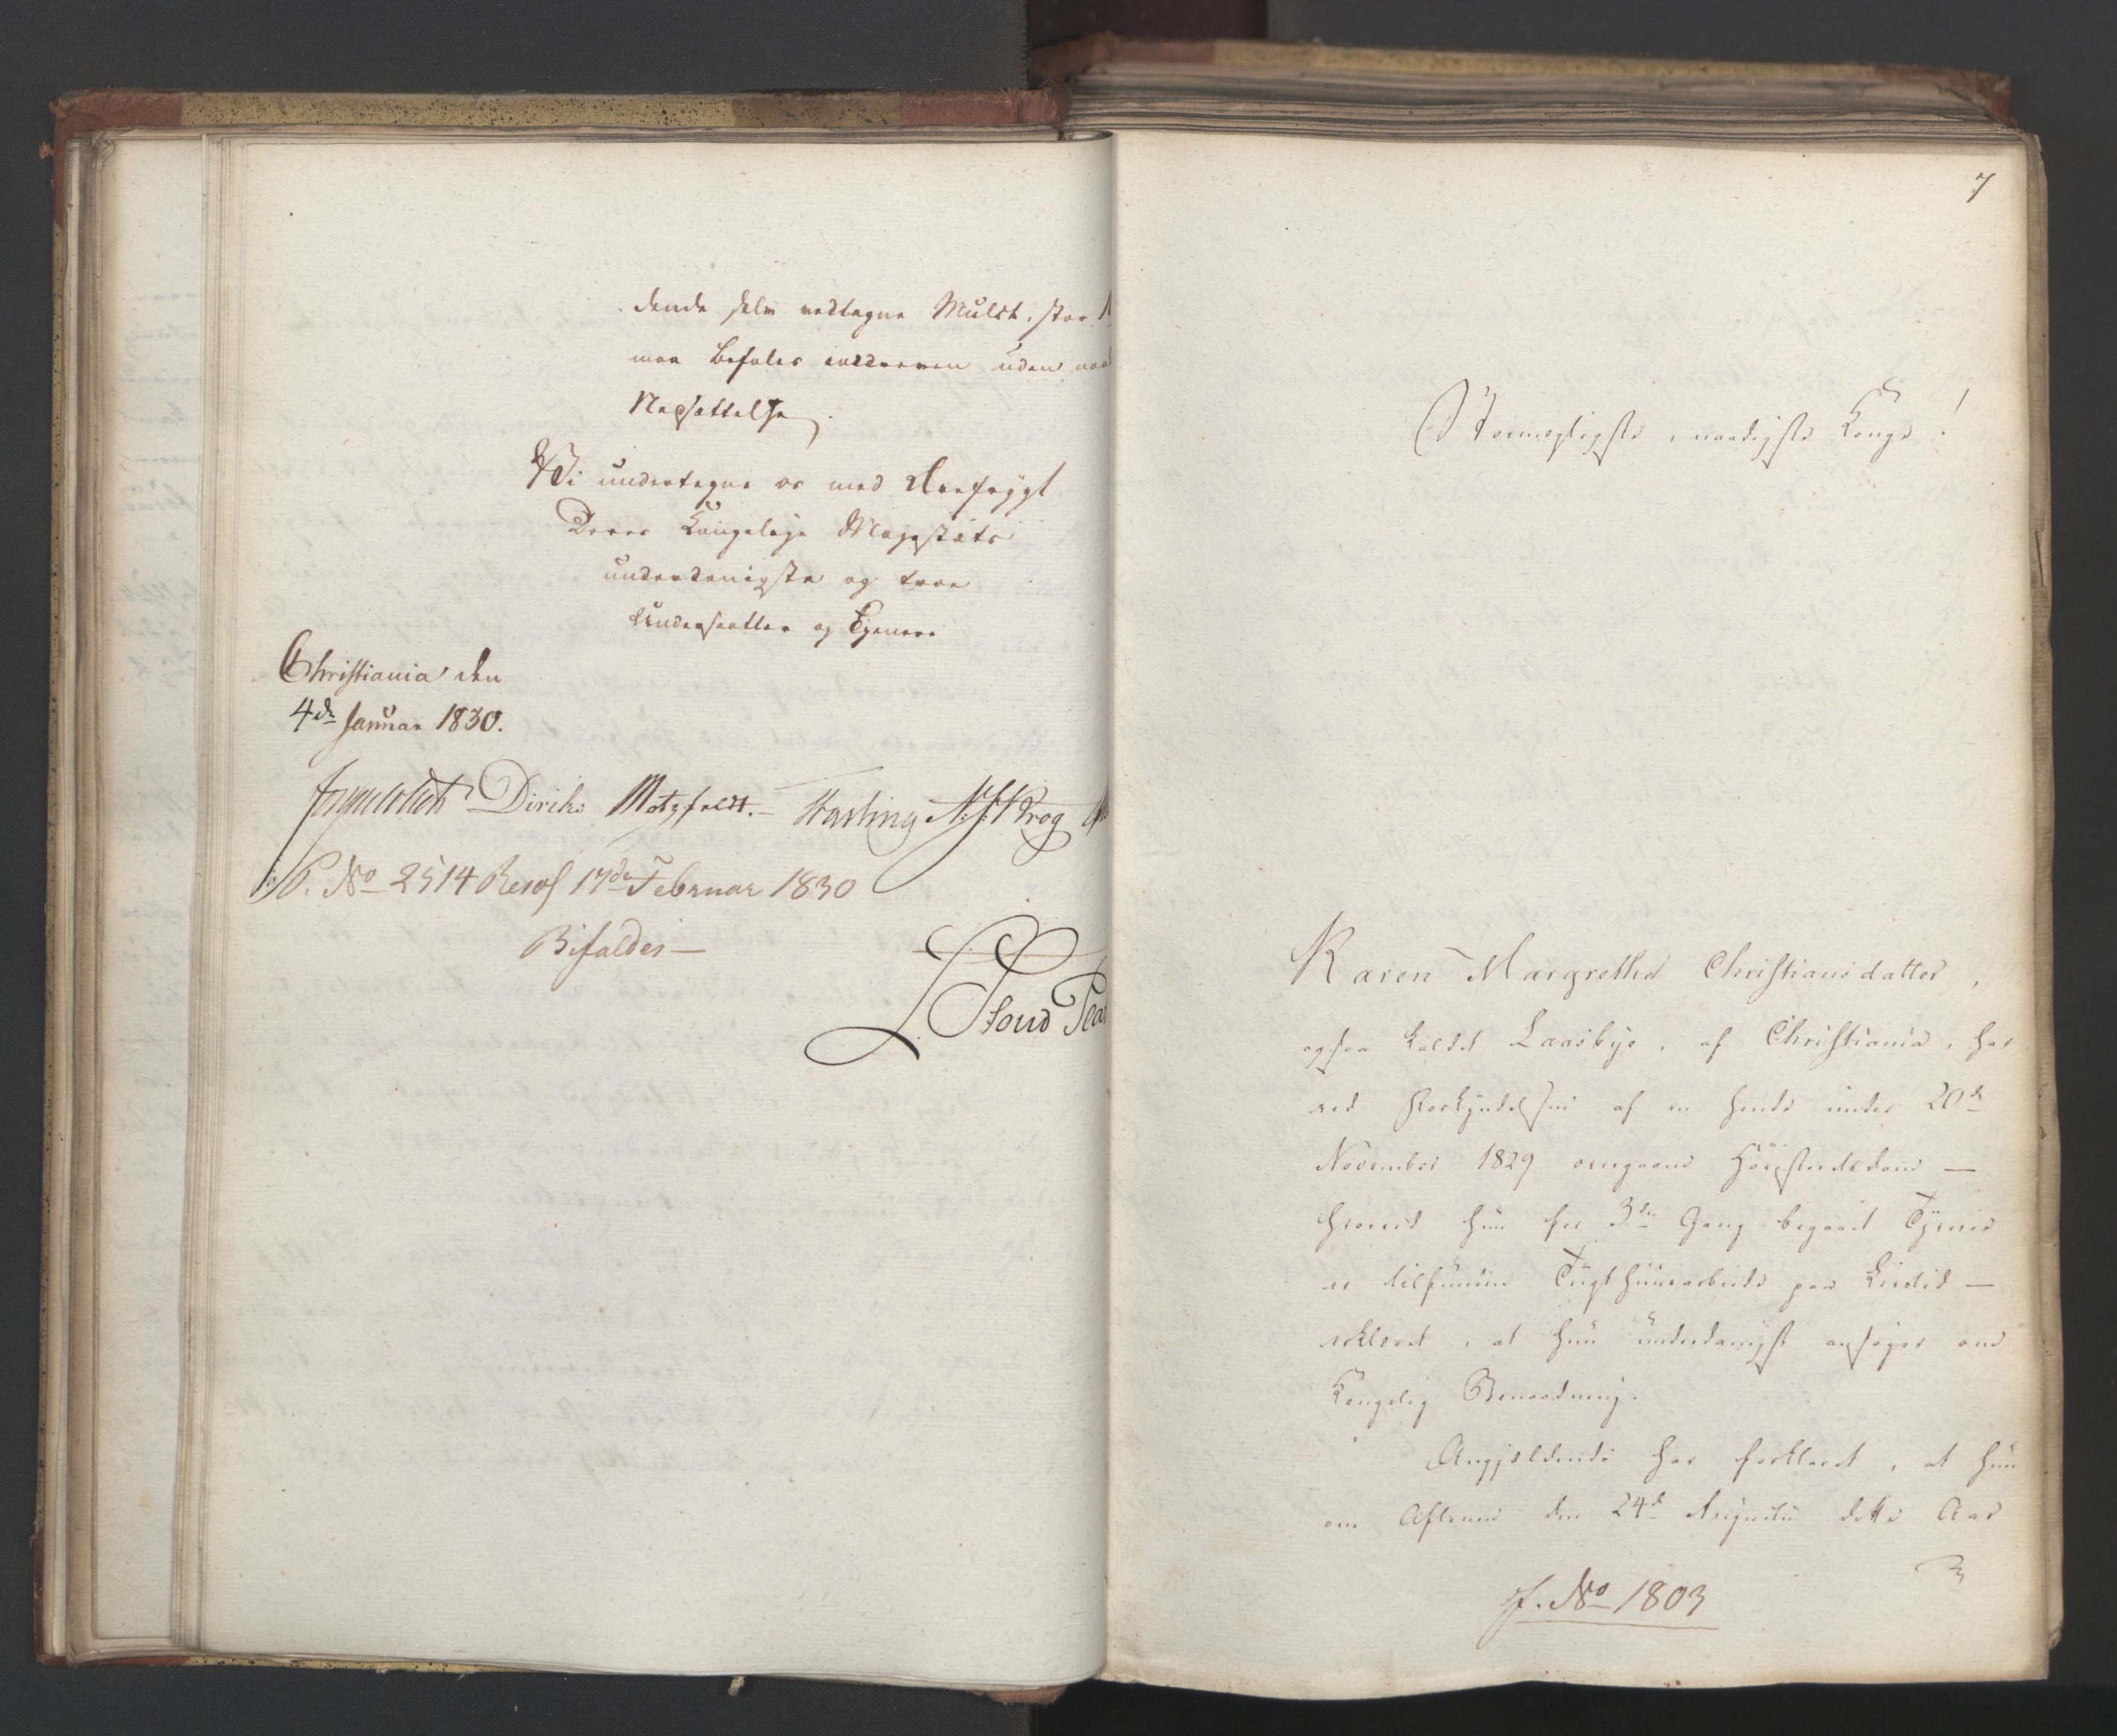 dende selv vedtagne Mulct, stor
maa befales inddreven uden
Nedsættelse.
Vi undertegne os med Ærefrygt
Deres Kongelige Majestæts
underdanigste og troe
Undersaatter og Tjenere
Christiania den
4de Januar 1830.
Diriks Motzfeldt. N. J. Krog
No 2514 Resol 17de Februar 1830
Bifaldes —
7
Stormægtigste, naadigste Konge!
Karen Margrethe Christiansdatter,
ogsaa kaldet Laasbye, af Christiania, har
ved Forkyndelsen af en hende under 20de
November 1829 overgaaet Höiesteretsdom —
hvorved hun for 3die Gang begaaet Tyverie
er tilfunden Tugthuusarbeide paa Livstid —
erklæret, at hun underdanigst ansøger om
Kongelig Benaadning.
Angjældende har forklaret, at hun
om Aftenen den 24de Augusti dette Aar
No 1803